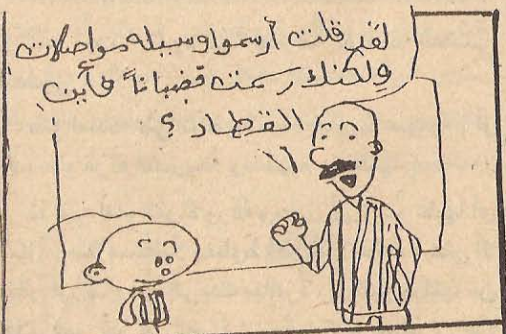 لقد قلت أرسموا وسيله مواصلات
ولكنك رسمت قضباناً فأين
القطار ؟